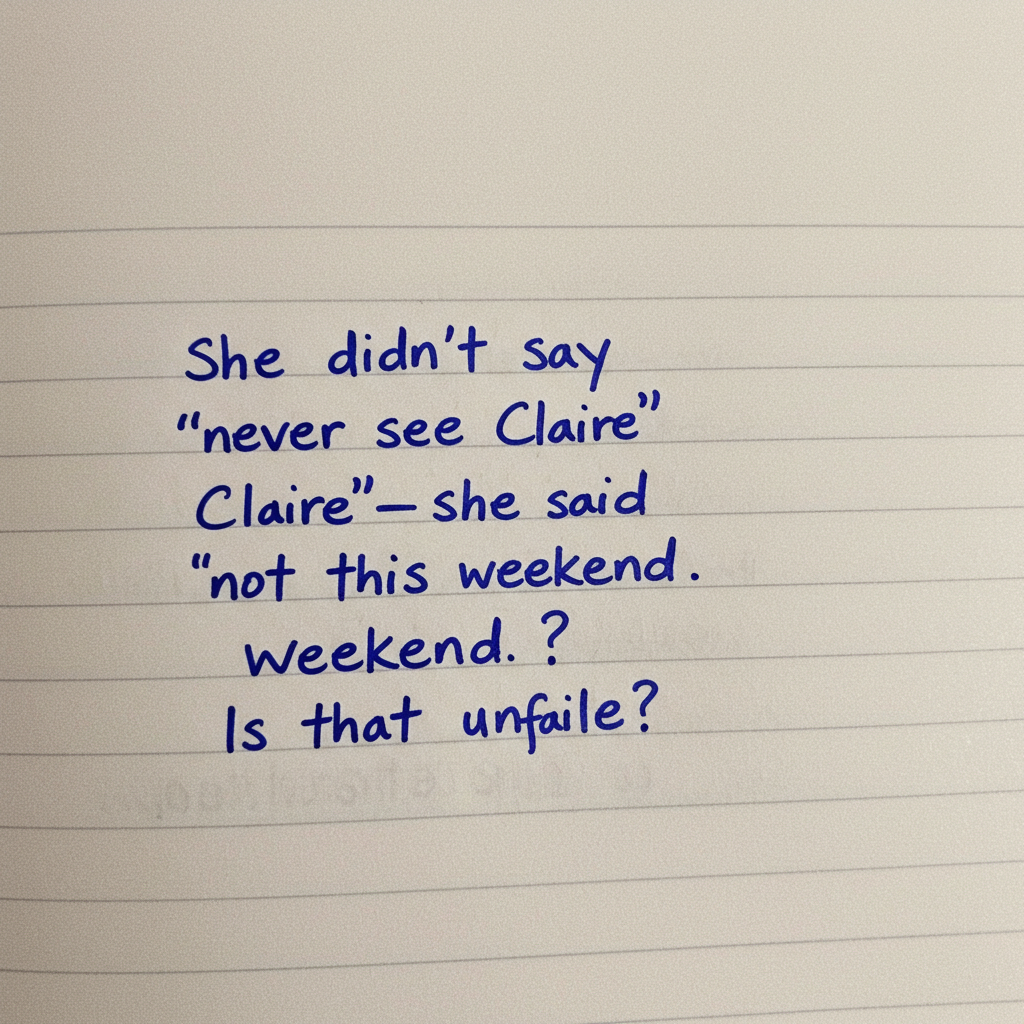 She didn't say
“never see Claire”
Claire”—she said
“not this weekend.
weekend. ?
Is that unfaile?